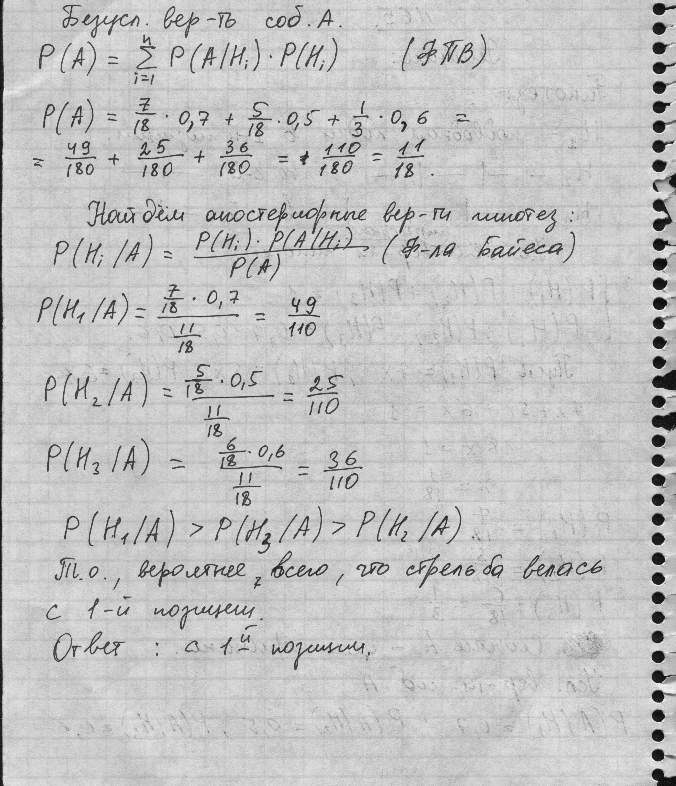 Безусл. вер-ть соб. А.
P(A) = n∑i=1 P(A/Hi) · P(Hi) (ФПВ)
P(A) = 7/18 · 0,7 + 5/18 · 0,5 + 1/3 · 0,6 =
= 49/180 + 25/180 + 36/180 = 110/180 = 11/18.
Найдём апостериорные вер-ти гипотез:
P(Hi/A) = P(Hi) · P(A/Hi) / P(A) (Ф-ла Байеса)
P(H1/A) = 7/18 · 0,7 / 11/18 = 49/110
P(H2/A) = 5/18 · 0,5 / 11/18 = 25/110
P(H3/A) = 6/18 · 0,6 / 11/18 = 36/110
P(H1/A) > P(H3/A) > P(H2/A)
Т.о., вероятнее всего, что стрельба велась
с 1-й позиции.
Ответ: с 1й позиции.